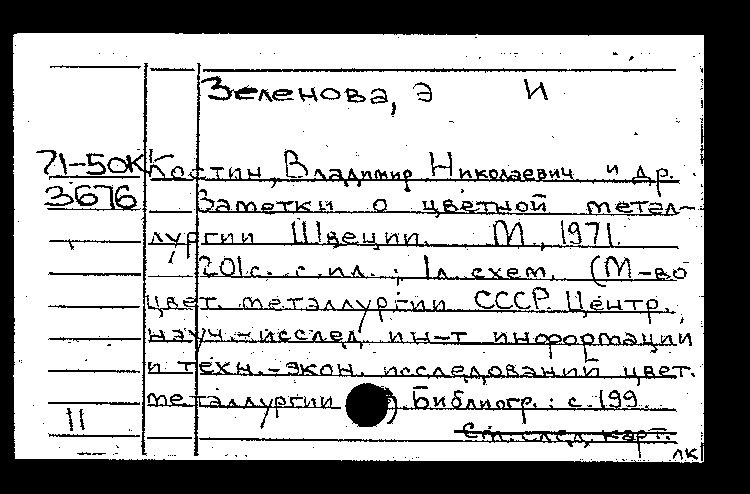 Зеленова, Э И
71-50К Костин, Владимир Николаевич и др.
3676 Заметки о цветной метал-
лургии Швеции. М., 1971.
201 с. с ил.; 1 л. схем. (М-во
цвет. металлургии СССР. Центр.
науч.-исслед. ин-т информации
и техн.-экон. исследований цвет.
металлургии ). Библиогр.: с. 199
11
См. след. карт.
лк